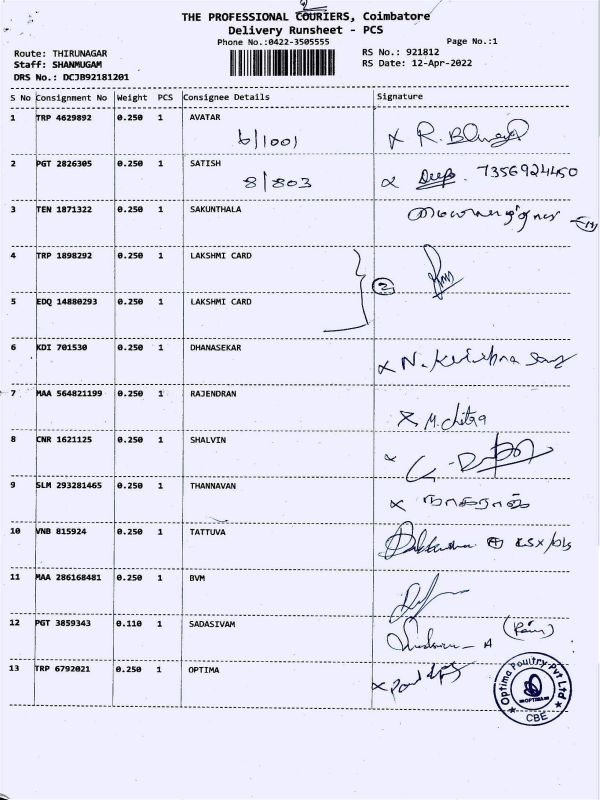 THE PROFESSIONAL COURIERS, Coimbatore
Delivery Runsheet - PCS
Phone No.:0422-3505555
Page No.:1
Route: THIRUNAGAR
RS No.: 921812
Staff: SHANMUGAM
RS Date: 12-Apr-2022
DRS No.: DCJB92181201
S No Consignment No Weight PCS Consignee Details Signature
1 TRP 4629892 0.250 1 AVATAR
6/1001
2 PGT 2826305 0.250 1 SATISH
8/803 7356924450
3 TEN 1871322 0.250 1 SAKUNTHALA
4 TRP 1898292 0.250 1 LAKSHMI CARD
2
5 EDQ 14880293 0.250 1 LAKSHMI CARD
6 KDI 701530 0.250 1 DHANASEKAR
N. Krishna
7 MAA 564821199 0.250 1 RAJENDRAN
M. Chitra
8 CNR 1621125 0.250 1 SHALVIN
9 SLM 293281465 0.250 1 THANNAVAN
நாகராஜ்
10 VNB 815924 0.250 1 TATTUVA
11 MAA 286168481 0.250 1 BVM
12 PGT 3859343 0.110 1 SADASIVAM
13 TRP 6792021 0.250 1 OPTIMA
Optima Poultry Pvt Ltd
OPTIMA
CBE